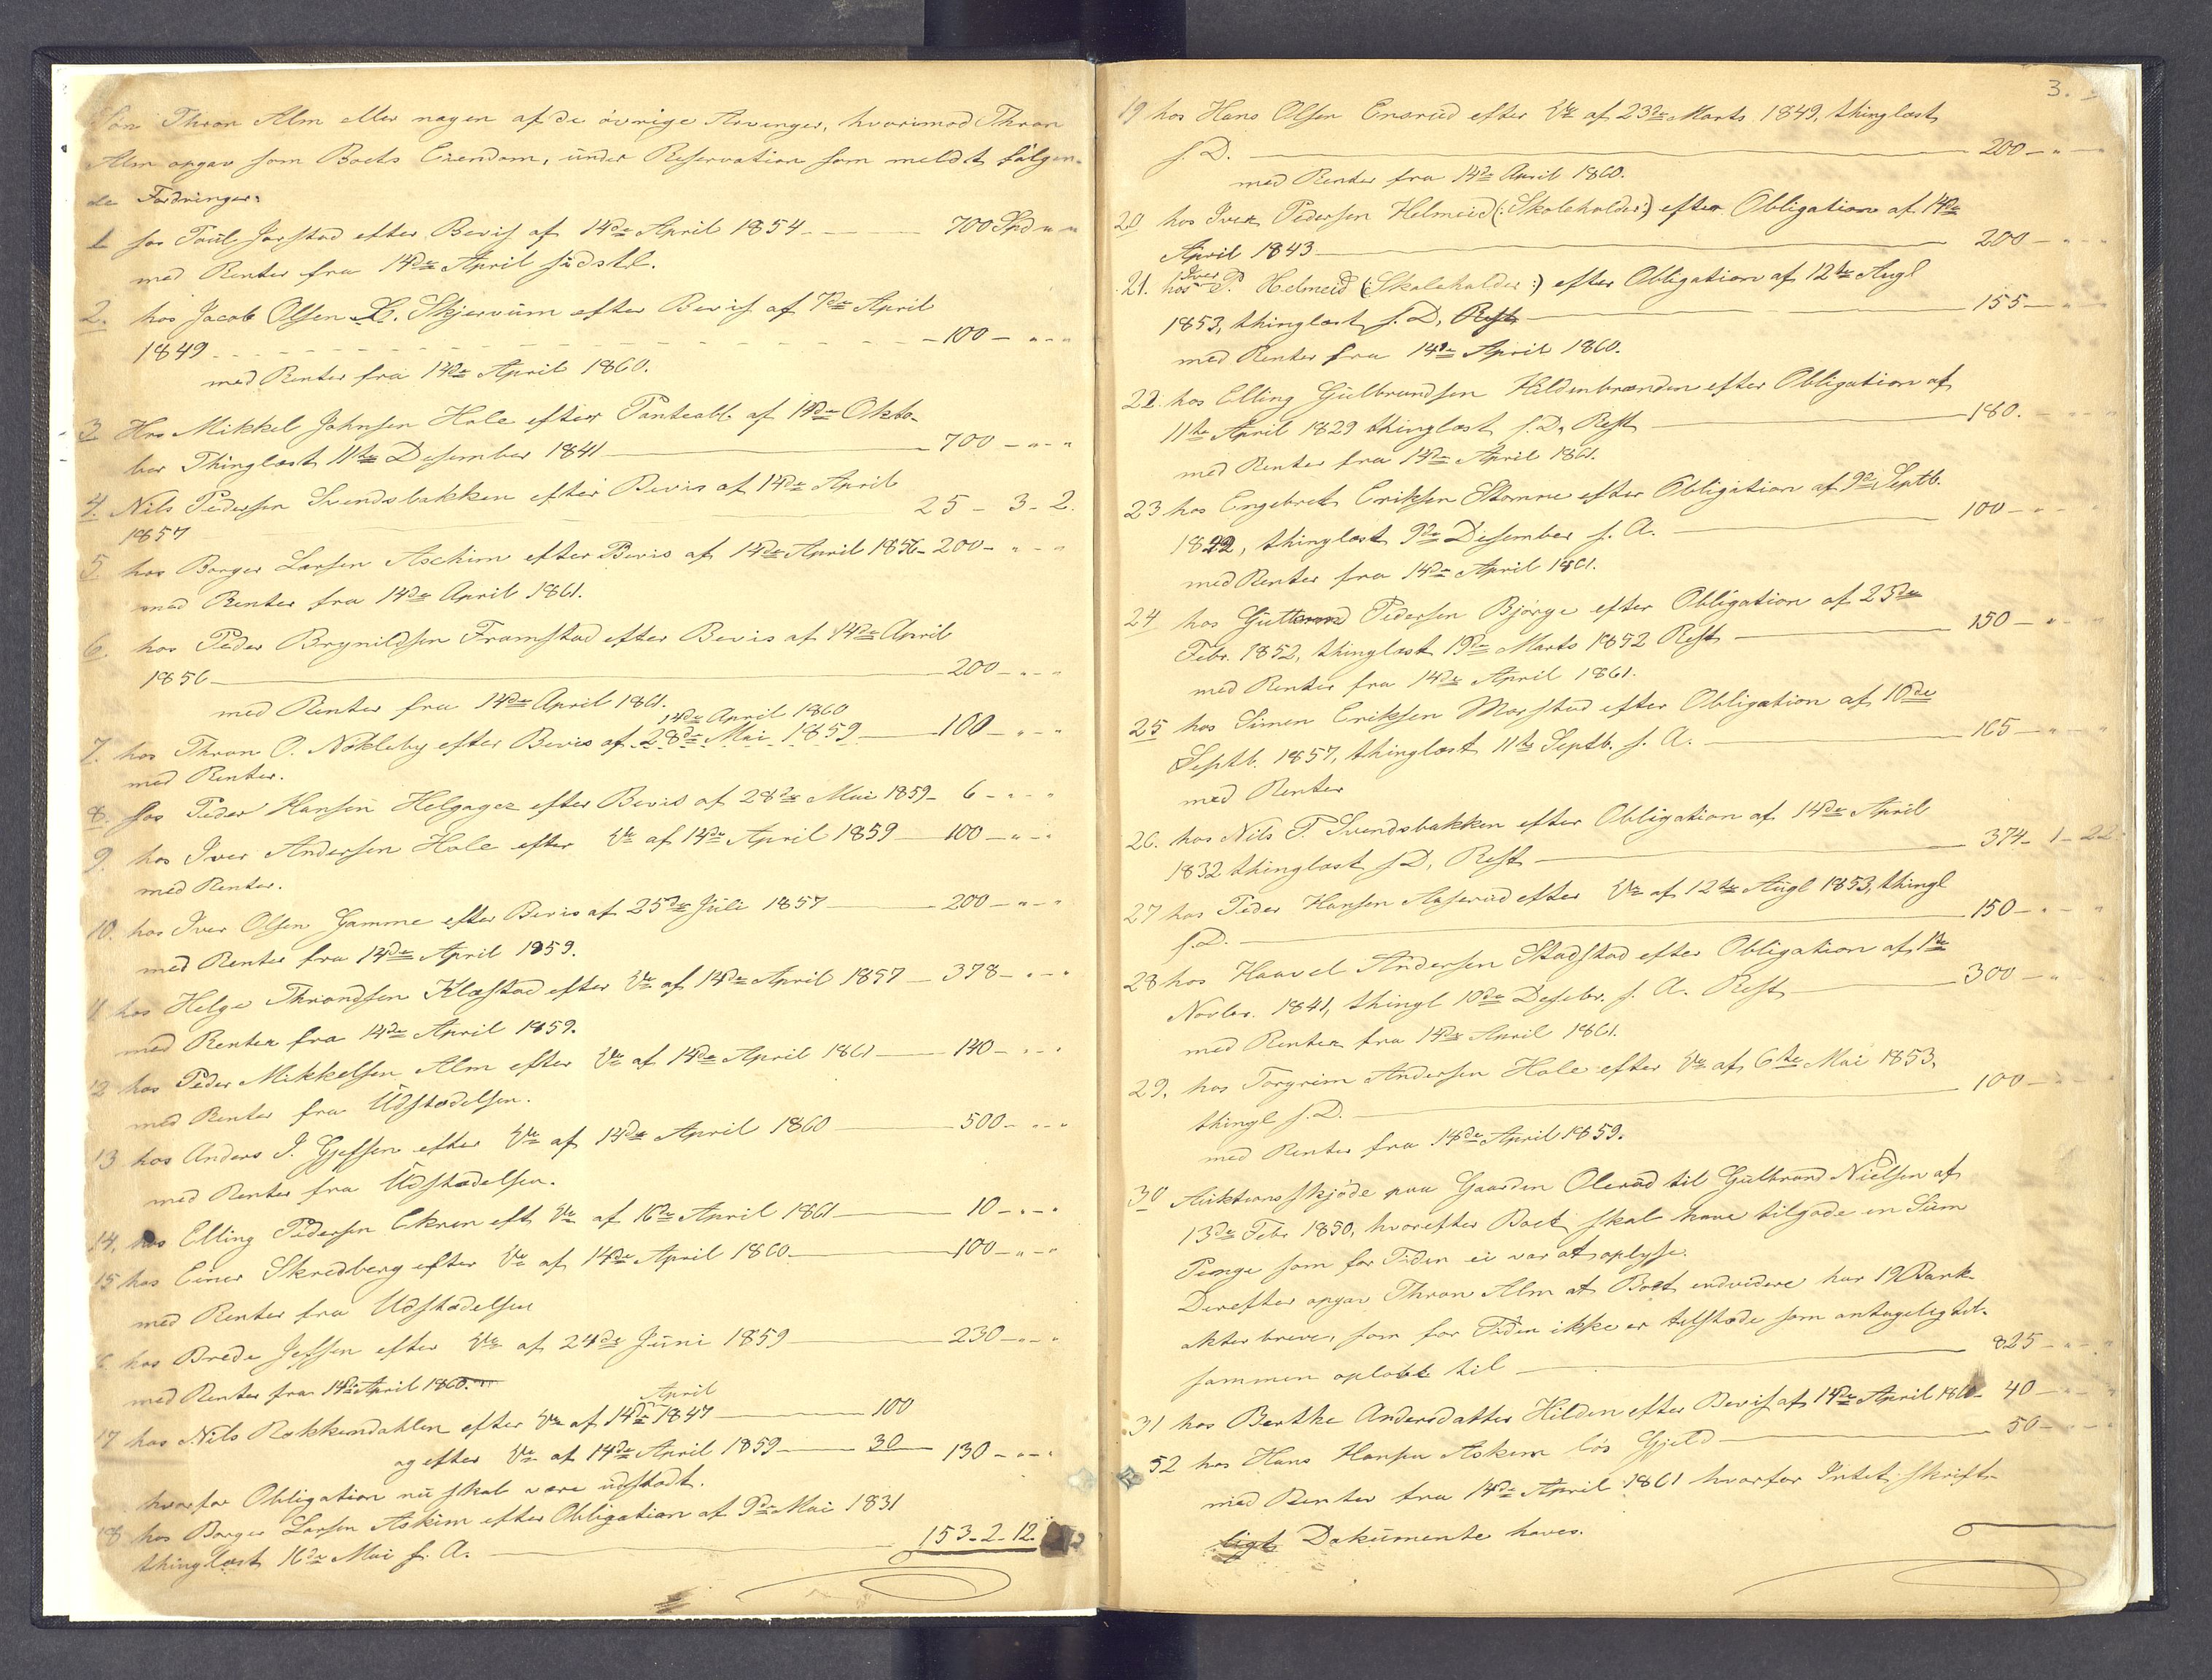 Søn Thron Alm eller nogen af de øvrige Arvinger, hvorimod Thron
Alm opgav som Boets Eiendom, under Reservation som meldt følgen-
de Fordringer:
1 hos Poul Jorstad efter Bevis af 14de April 1854 — 700 Spd " "
med Renter fra 14de April sidstl.
2. hos Jacob Olsen L. Skjervum efter Bevis af 7de April
1849 — 100 — " - "
med Renter fra 14de April 1860.
3 Hos Mikkel Johnsen Hole efter Panteobl. af 14de Okto-
ber Thinglæst 11te Desember 1841 — 700 — " - "
4. Nils Pedersen Svendsbakken efter Bevis af 14de April
1857 — 25 - 3 - 2.
5. hos Borger Larsen Aschim efter Bevis af 14de April 1856 - 200 - " - "
med Renter fra 14de April 1861.
6. hos Peder Brynildsen Framstad efter Bevis af 14de April
1856 — 200 - " - "
med Renter fra 14de April 1861.
14de April 1860
7. hos Thron O. Nokleby efter Bevis af 28de Mai 1859 — 100 - " - "
med Renter.
8. hos Peder Hansen Helgager efter Bevis af 28de Mai 1859 - 6 - " - "
9. hos Iver Andersen Hole efter do af 14de April 1859 — 100 - " - "
med Renter.
10. hos Iver Olsen Gamme efter Bevis af 25de Juli 1857 — 200 - " - "
med Renter fra 14de April 1859.
11 hos Helge Throndsen Klæstad efter do af 14de April 1857 — 378 - " - "
med Renter fra 14de April 1859.
12 hos Peder Mikkelsen Alm efter do af 14de April 1861 — 140 - " - "
med Renter fra Udstædelsen.
13 hos Anders J. Gjefsen efter do af 14de April 1860 — 500 - " - "
med Renter fra Udstædelsen.
14. hos Elling Pedersen Ekren eft do af 16de April 1861 — 10 - " - "
15 hos Einer Skredberg efter do af 14de April 1860 — 100 - " - "
med Renter fra Udstædelsen
6 hos Brede Jefsen efter do af 24de Juni 1859 — 230 - " - "
med Renter fra 14de April 1860.
April
17 hos Nils Rokkendahlen efter do af 14de 1847 — 100
og efter do af 14de April 1859 — 30 — 130 - " - "
hvorfor Obligation nu skal være udstædt.
18 hos Borger Larsen Askim efter Obligation af 9de Mai 1831
thinglæst 16de Mai s. A. — 153 - 2 - 12.
3.
19 hos Hans Olsen Ensrud efter do af 23de Marts 1849, thinglæst
s. D. — 200 - " -
med Renter fra 14de April 1860.
20 hos Iver Pedersen Helmeid (: Skoleholder :) efter Obligation af 14de
April 1843 — 200 - " - "
Iver
21. hos P. Helmeid (: Skoleholder :) efter Obligation af 12te Augl
1853, thinglæst s. D, Rest — 155 - "
med Renter fra 14de April 1860.
22. hos Elling Gulbrandsen Hildenbrænden efter Obligation af
11te April 1829 thinglæst s. D, Rest — 180. - " - "
med Renter fra 14de April 1861.
23 hos Engebret Eriksen Stomne efter Obligation af 9de Septb.
1822, thinglæst 9de Desember s. A. — 100 - " -
med Renter fra 14de April 1861.
24 hos Guttorm Pedersen Bjørge efter Obligation af 23de
Febr. 1852, thinglæst 19de Marts 1852 Rest — 150 - " - "
med Renter fra 14de April 1861.
25 hos Simen Eriksen Morstad efter Obligation af 10de
Septb. 1857, thinglæst 11te Septb. s. A. — 165 - " - "
med Renter
26. hos Nils P. Svendsbakken efter Obligation af 14de April
1832 thinglæst s D, Rest — 374 - 1 - 22
27 hos Peder Hansen Aaserud efter do af 12te Augl 1853, thingl
s. D. — 150 - " - "
28 hos Haavel Andersen Stadstad efter Obligation af 1te
Novbr. 1841, thingl 10de Desebr. s. A. Rest — 300 - "
med Renter fra 14de April 1861.
29. hos Torgrim Andersen Hole efter do af 6te Mai 1853,
thingl s. D. — 100 - " -
med Renter fra 14de April 1859.
30 Auktionsskjøde paa Gaarden Olerud til Gulbrand Nielsen af
13de Febr 1850, hvorefter Boet skal have tilgode en Sum
Penge som for Tiden ei var at oplyse.
Derefter opgav Thron Alm at Boet endvidere har 19 Bank-
aktiebreve, som for Tiden ikke er tilstæde som antagelig til-
sammen opløbe til — 825 - " - "
31 hos Berthe Andersdatter Hilden efter Bevis af 14de April 1860 - 40 - " - "
52 hos Hans Hansen Askim løs Gjeld — 50 - " - "
med Renter fra 14de April 1861 hvorfor Intet skrift-
ligt Dokumente haves.